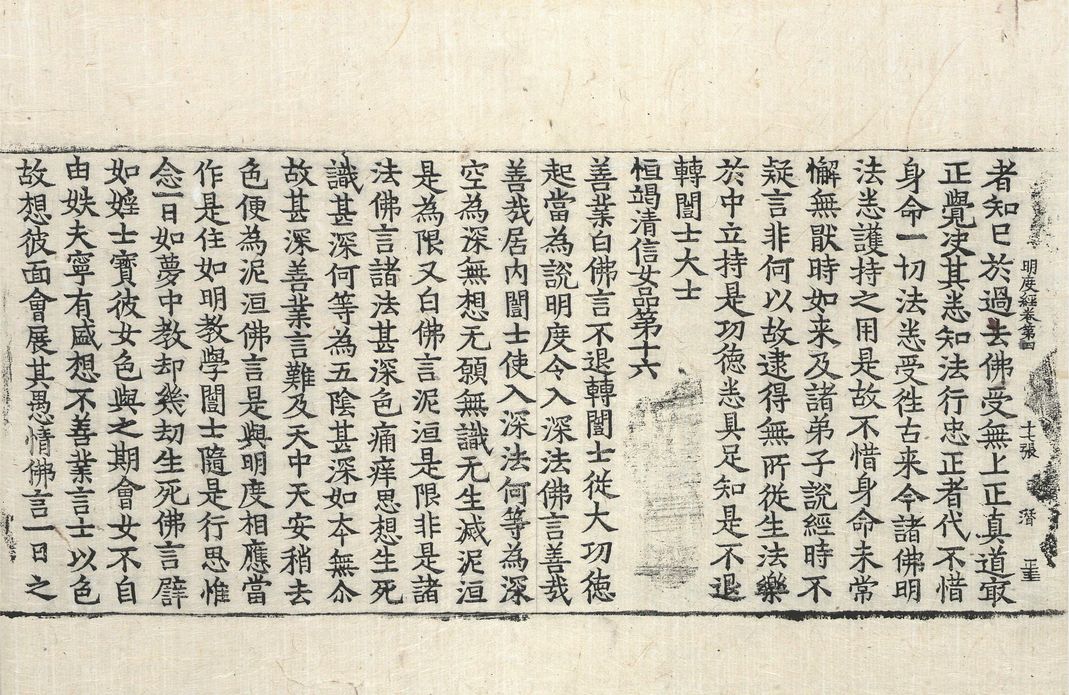 明度經卷第四 十七張 潛 𡈽
者知已於過去佛受無上正真道㝡
正覺决其悉知法行忠正者代不惜
身命一切法悉受徃古来今諸佛明
法悉護持之用是故不惜身命未常
懈無猒時如来及諸弟子說經時不
疑言非何以故逮得無所從生法樂
於中立持是功徳悉具足知是不退
轉闓士大士
恒竭清信女品第十六
善業白佛言不退轉闓士從大功徳
起當為說明度令入深法佛言善㢤
善㢤居内闓士使入深法何等為深
空為深無想无願無識无生滅泥洹
是為限又白佛言泥洹是限非是諸
法佛言諸法甚深色痛痒思想生死
識甚深何等為五陰甚深如本無尒
故甚深善業言難及天中天安稍去
色便為泥洹佛言是與明度相應當
作是住如明教學闓士隨是行思惟
念一日如夢中教却幾劫生死佛言譬
如婬士寳彼女色與之期會女不自
由妷夫寧有盛想不善業言士以色
故想彼面會展其愚情佛言一日之